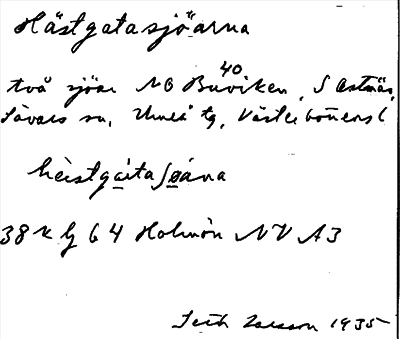 Hästgatasjöarna
40
två sjöar NO Buviken, S Ostnäs,
Sävars sn, Umeå tg, Västerbottens l
38 k g 6 4 Holmön NV A3
Seth Larsson 1935